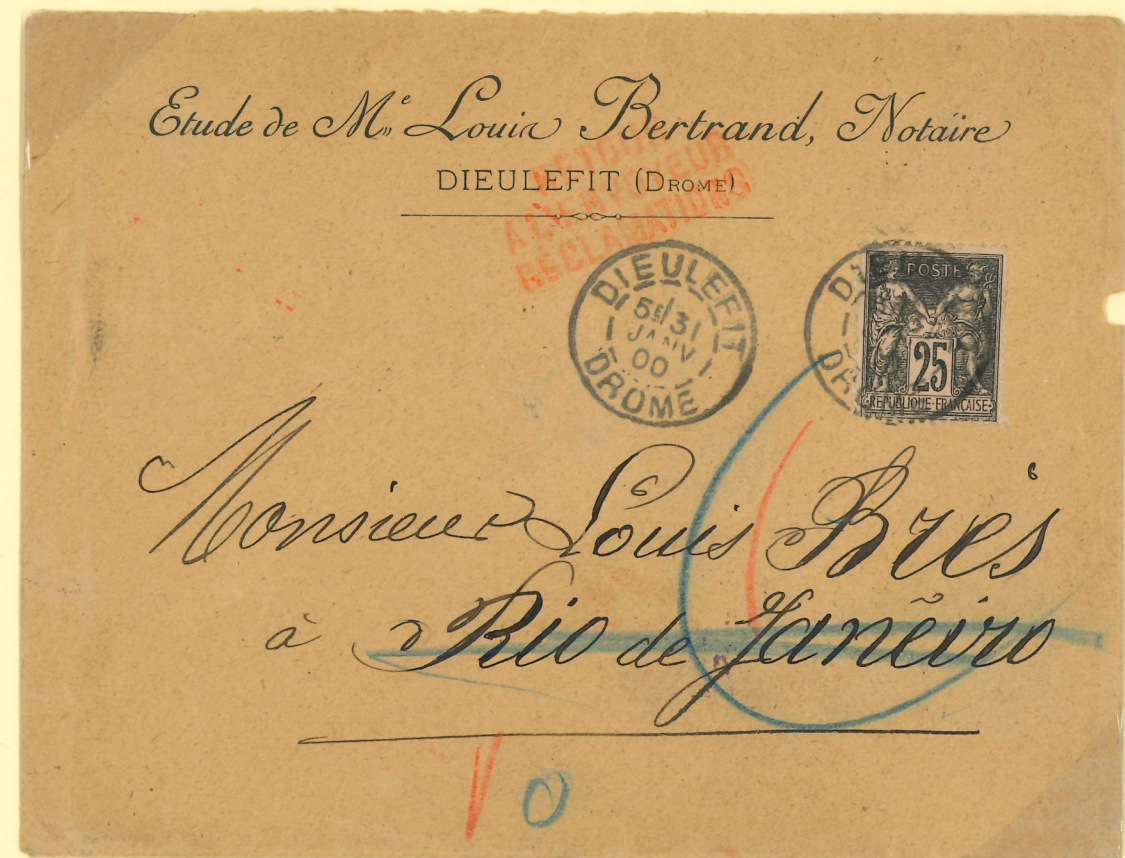 Etude de Me Louis Bertrand, Notaire
DIEULEFIT (DROME)
RETOUR
A L'ENVOYEUR
RÉCLAMATIONS
DIEULEFIT
5E 31
JANV
00
DROME
POSTE
25
REPUBLIQUE FRANÇAISE
Monsieur Louis Brès
à Rio de Janẽiro
0